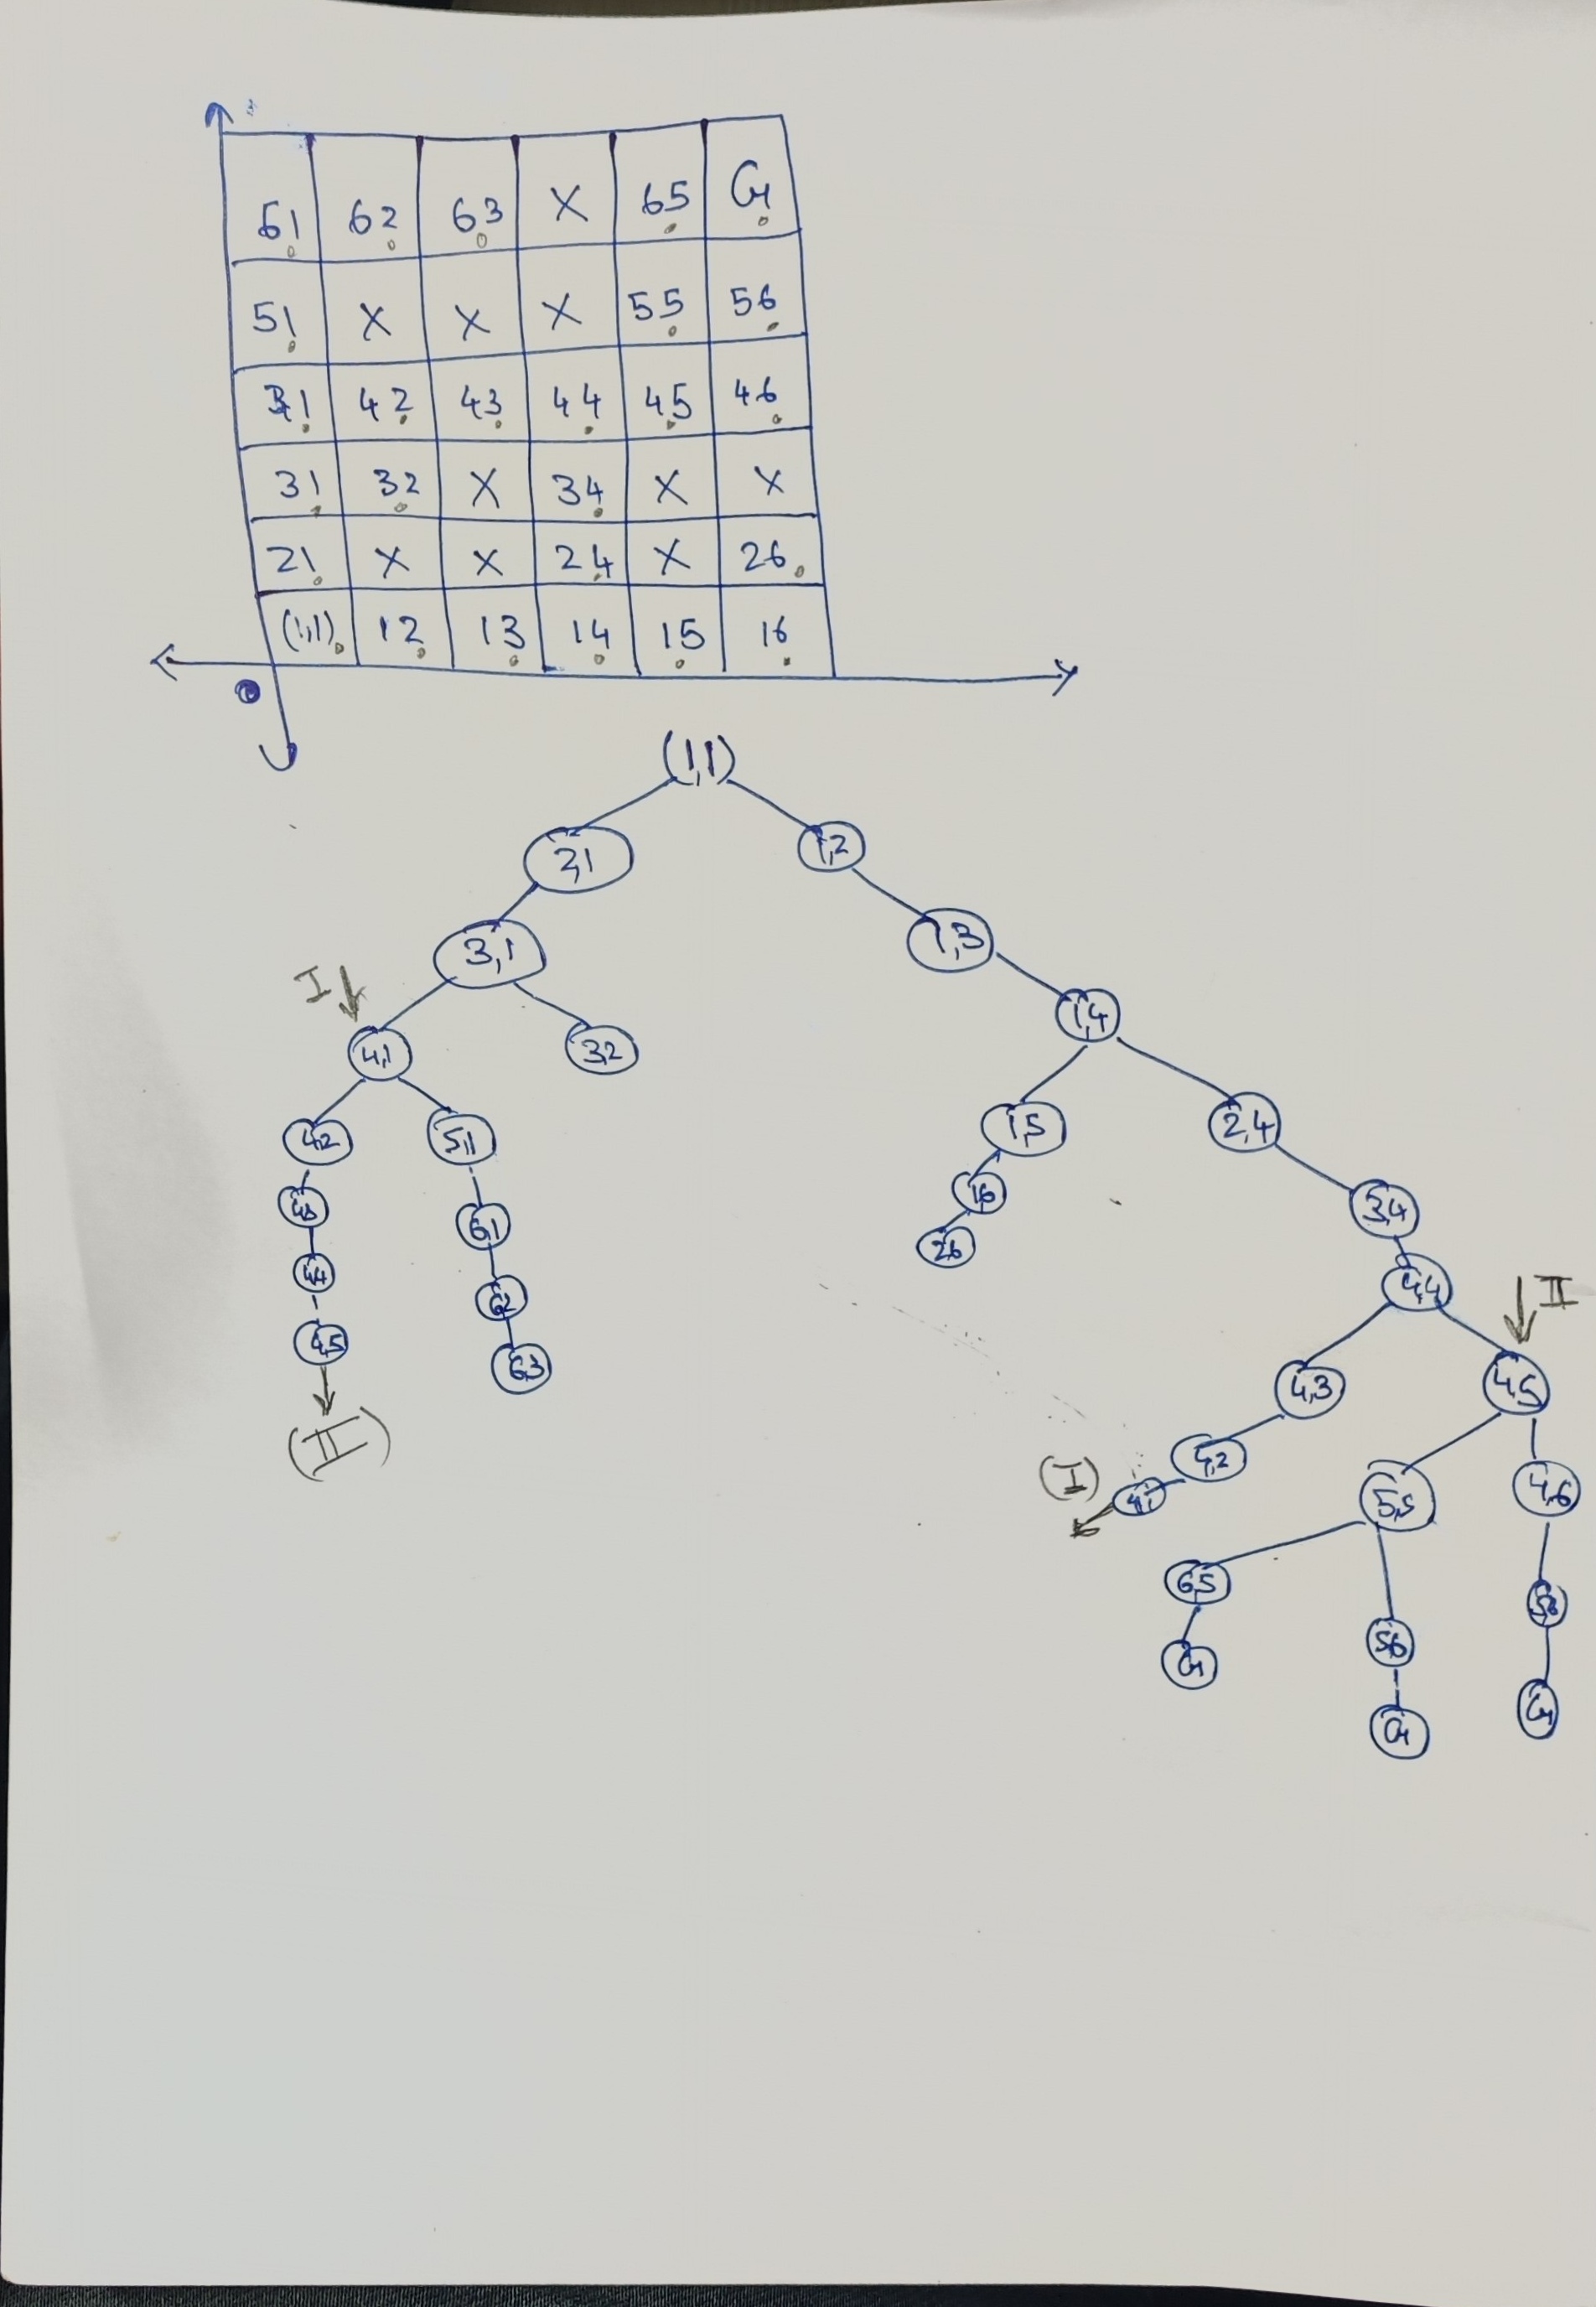 61 62 63 X 65 G
51 X X X 55 56
42 43 44 45 46
31 32 X 34 X X
21 X X 24 X 26
(1,1) 12 13 14 15 16
(1,1)
2,1 1,2
3,1 1,3
I
4,1 32 1,4
42 5,1 1,5 2,4
43 6,1 16 3,4
44 62 26 4,4 II
45 63 4,3 4,5
(II) (I) 4,1 4,2 5,5 4,6
65 56 56
G G G